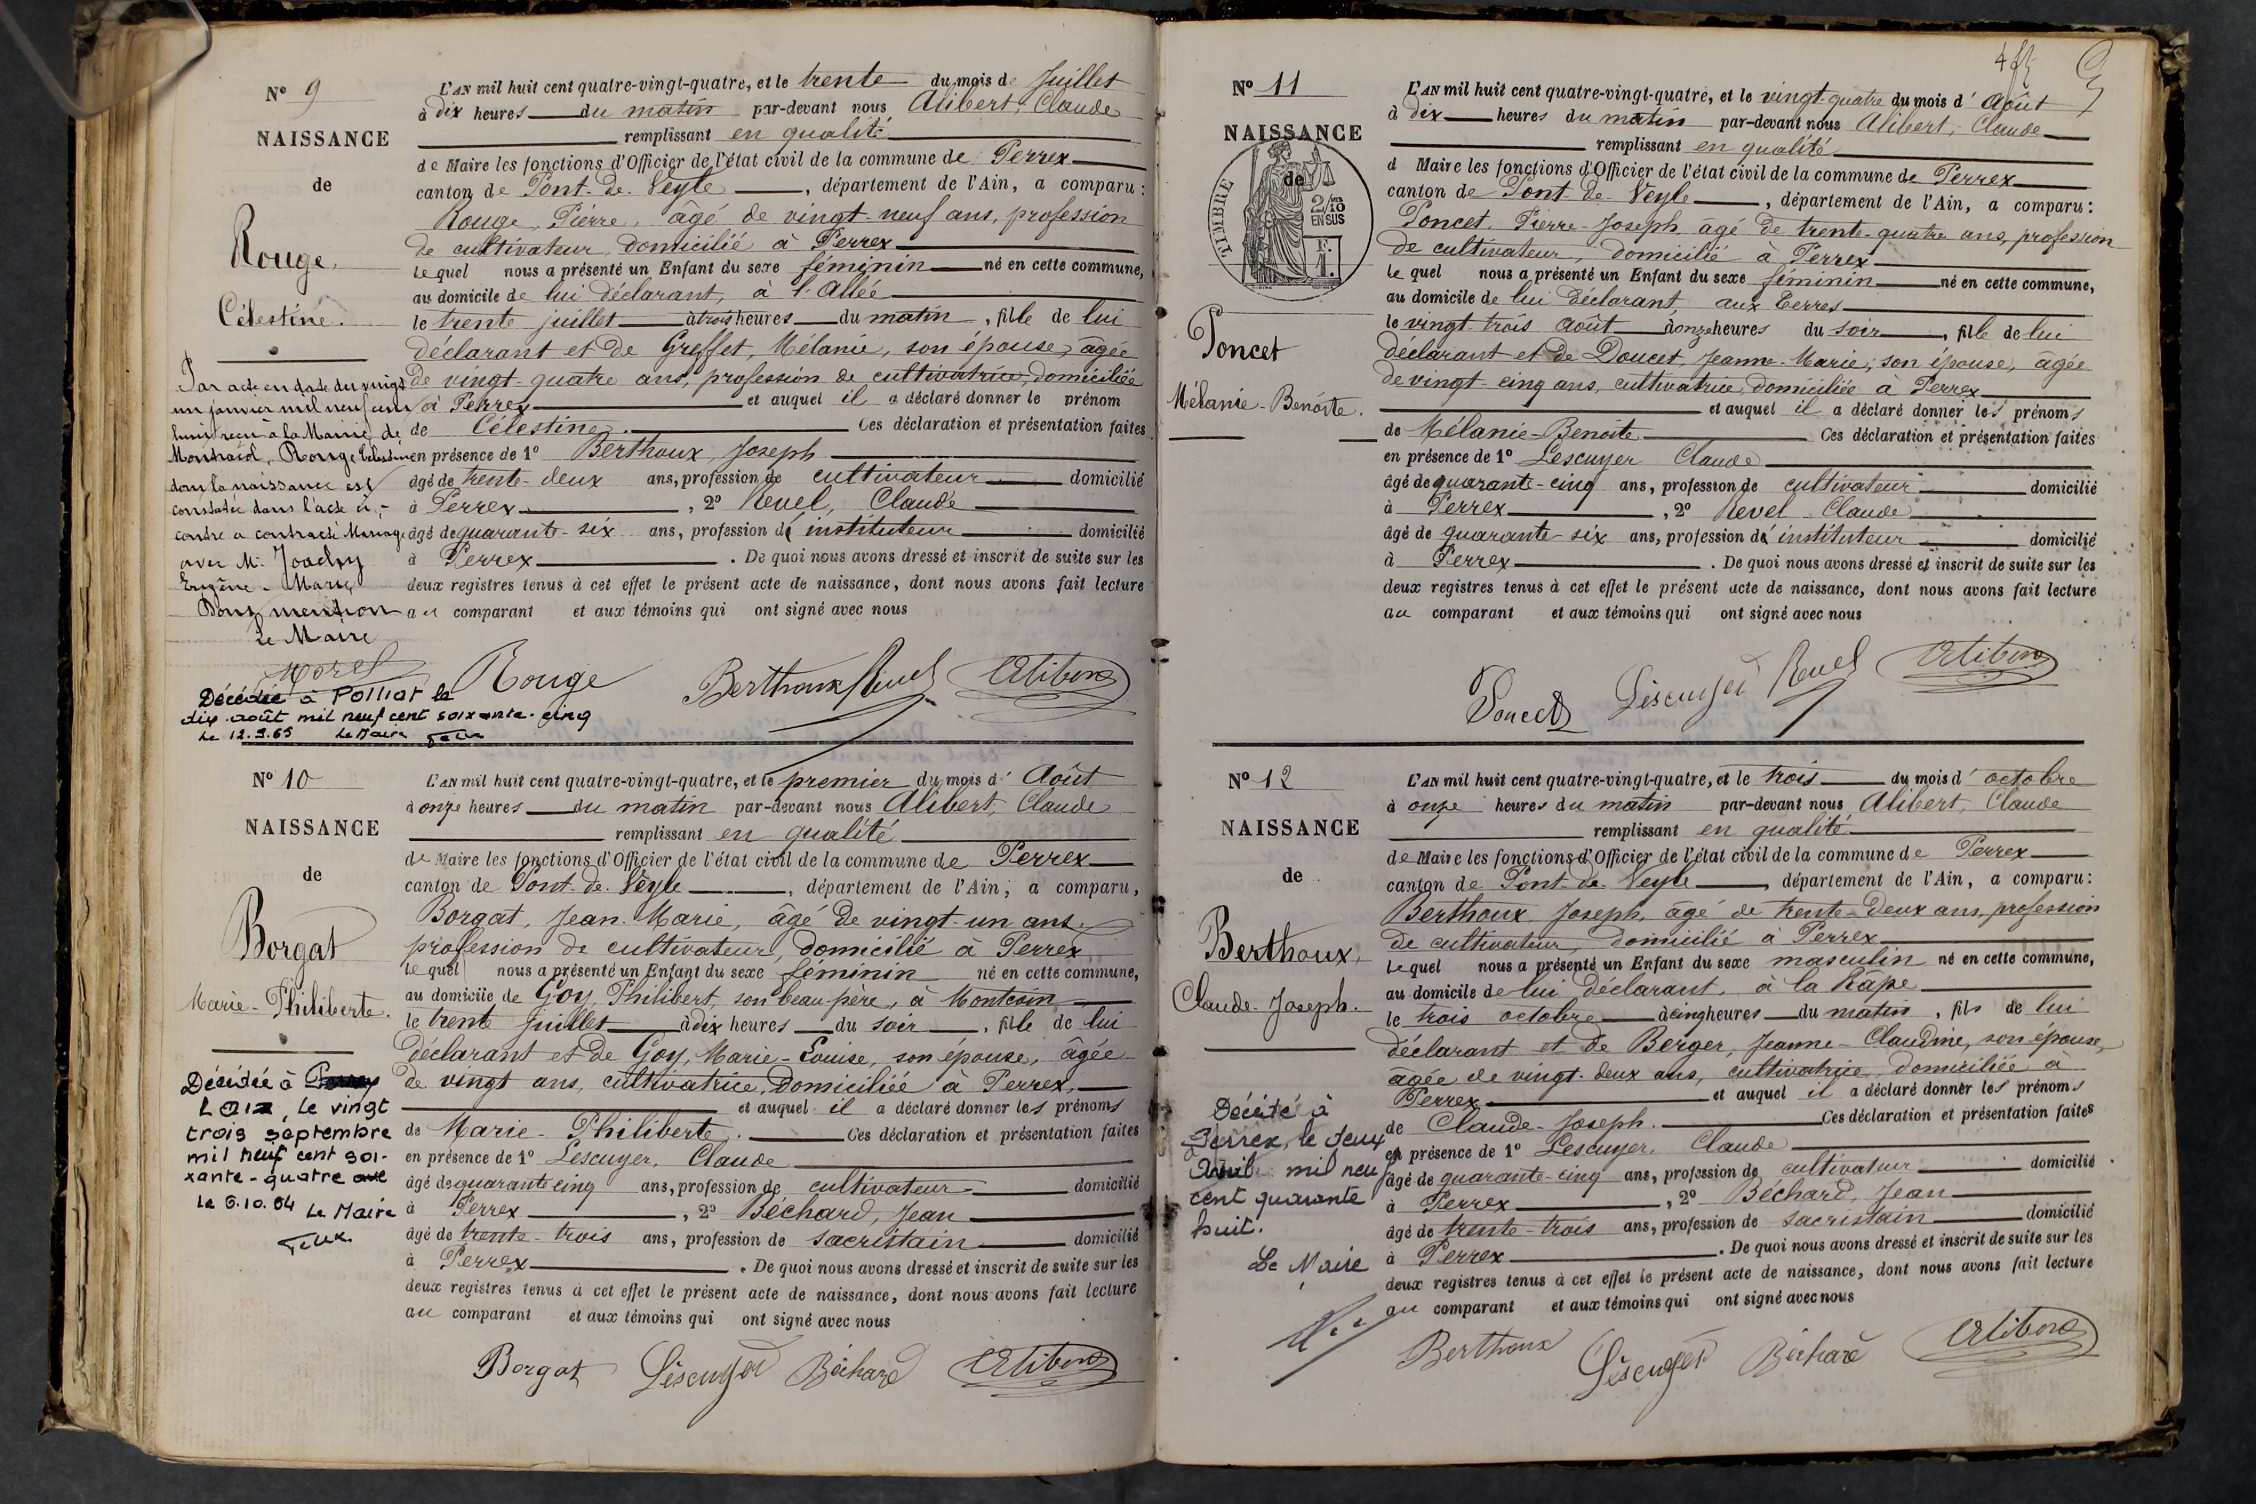 N° 9
NAISSANCE
de
Rouge,
Célestine.
Par acte en date du vingt
un janvier mil neuf cent
huit reçu à la Mairie de
Rouge Célestine
dont la naissance est
constatée dans l'acte ci-
contre a contracté Mariage
avec M.
Eugène - Marie
Dont mention
Le Maire
Morel
Décédée à Polliat le
dix août mil neuf cent soixante-cinq
Le 12.9.65 Le Maire
L'AN mil huit cent quatre-vingt-quatre, et le trente du mois de Juillet
à dix heures du matin par-devant nous Alibert, Claude
remplissant en qualité
de Maire les fonctions d'Officier de l'état civil de la commune de Perrex
canton de Pont-de-Veyle, département de l'Ain, a comparu :
Rouge, Pierre, âgé de vingt-neuf ans, profession
de cultivateur, domicilié à Perrex
lequel nous a présenté un Enfant du sexe féminin né en cette commune,
au domicile de lui déclarant, à l'Allée
le trente juillet à trois heures du matin, fille de lui
déclarant et de Greffet, Mélanie, son épouse, âgée
de vingt-quatre ans, profession de cultivatrice, domiciliée
à Perrex et auquel il a déclaré donner le prénom
de Célestine. Ces déclaration et présentation faites
en présence de 1° Berthoux, Joseph
âgé de trente-deux ans, profession de cultivateur domicilié
à Perrex, 2° Revel, Claude
âgé de quarante-six ans, profession d'instituteur domicilié
à Perrex. De quoi nous avons dressé et inscrit de suite sur les
deux registres tenus à cet effet le présent acte de naissance, dont nous avons fait lecture
au comparant et aux témoins qui ont signé avec nous
Rouge Berthoux Revel Alibert
N° 10
NAISSANCE
de
Borgat
Marie-Philiberte.
Décédée à
Laiz, le vingt
trois septembre
mil neuf cent soi-
xante-quatre
Le 6.10.64 Le Maire
L'AN mil huit cent quatre-vingt-quatre, et le premier du mois d'Août
à onze heures du matin par-devant nous Alibert, Claude
remplissant en qualité
de Maire les fonctions d'Officier de l'état civil de la commune de Perrex
canton de Pont-de-Veyle, département de l'Ain, a comparu,
Borgat, Jean-Marie, âgé de vingt-un ans,
profession de cultivateur, domicilié à Perrex
lequel nous a présenté un Enfant du sexe féminin né en cette commune,
au domicile de Goy, Philibert, son beau-père, à Montcoin
le trente juillet à dix heures du soir, fille de lui
déclarant et de Goy, Marie-Louise, son épouse, âgée
de vingt ans, cultivatrice, domiciliée à Perrex,
et auquel il a déclaré donner les prénoms
de Marie-Philiberte. Ces déclaration et présentation faites
en présence de 1° Lescuyer, Claude
âgé de quarante cinq ans, profession de cultivateur domicilié
à Perrex, 2° Béchard, Jean
âgé de trente-trois ans, profession de sacristain domicilié
à Perrex. De quoi nous avons dressé et inscrit de suite sur les
deux registres tenus à cet effet le présent acte de naissance, dont nous avons fait lecture
au comparant et aux témoins qui ont signé avec nous
Borgat Lescuyer Béchard Alibert
N° 11
NAISSANCE
de
TIMBRE
2/10
EN SUS
Poncet
Mélanie-Benoîte.
L'AN mil huit cent quatre-vingt-quatre, et le vingt-quatre du mois d'Août
à dix heures du matin par-devant nous Alibert, Claude
remplissant en qualité
d Maire les fonctions d'Officier de l'état civil de la commune de Perrex
canton de Pont-de-Veyle, département de l'Ain, a comparu:
Poncet, Pierre-Joseph, âgé de trente-quatre ans, profession
de cultivateur, domicilié à Perrex
lequel nous a présenté un Enfant du sexe féminin né en cette commune,
au domicile de lui déclarant, aux Terres
le vingt-trois août à onze heures du soir, fille de lui
déclarant et de Doucet, Jeanne-Marie, son épouse, âgée
de vingt-cinq ans, cultivatrice, domiciliée à Perrex
et auquel il a déclaré donner les prénoms
de Mélanie-Benoîte. Ces déclaration et présentation faites
en présence de 1° Lescuyer Claude
âgé de quarante-cinq ans, profession de cultivateur domicilié
à Perrex, 2° Revel Claude
âgé de quarante-six ans, profession d'instituteur domicilié
à Perrex. De quoi nous avons dressé et inscrit de suite sur les
deux registres tenus à cet effet le présent acte de naissance, dont nous avons fait lecture
au comparant et aux témoins qui ont signé avec nous
Poncet Lescuyer Revel Alibert
N° 12
NAISSANCE
de
Berthoux,
Claude-Joseph.
Décédé à
Perrex, le deux
Avril mil neuf
cent quarante
huit.
Le Maire
L'AN mil huit cent quatre-vingt-quatre, et le trois du mois d'octobre
à onze heures du matin par-devant nous Alibert, Claude
remplissant en qualité
de Maire les fonctions d'Officier de l'état civil de la commune de Perrex
canton de Pont-de-Veyle, département de l'Ain, a comparu:
Berthoux, Joseph, âgé de trente-deux ans, profession
de cultivateur, domicilié à Perrex
lequel nous a présenté un Enfant du sexe masculin né en cette commune,
au domicile de lui déclarant, à la Râpe
le trois octobre à cinq heures du matin, fils de lui
déclarant et de Berger, Jeanne-Claudine, son épouse,
âgée de vingt-deux ans, cultivatrice, domiciliée à
Perrex et auquel il a déclaré donner les prénoms
de Claude-Joseph. Ces déclaration et présentation faites
en présence de 1° Lescuyer, Claude
âgé de quarante-cinq ans, profession de cultivateur domicilié
à Perrex, 2° Béchard, Jean
âgé de trente-trois ans, profession de sacristain domicilié
à Perrex. De quoi nous avons dressé et inscrit de suite sur les
deux registres tenus à cet effet le présent acte de naissance, dont nous avons fait lecture
au comparant et aux témoins qui ont signé avec nous
Berthoux Lescuyer Béchard Alibert